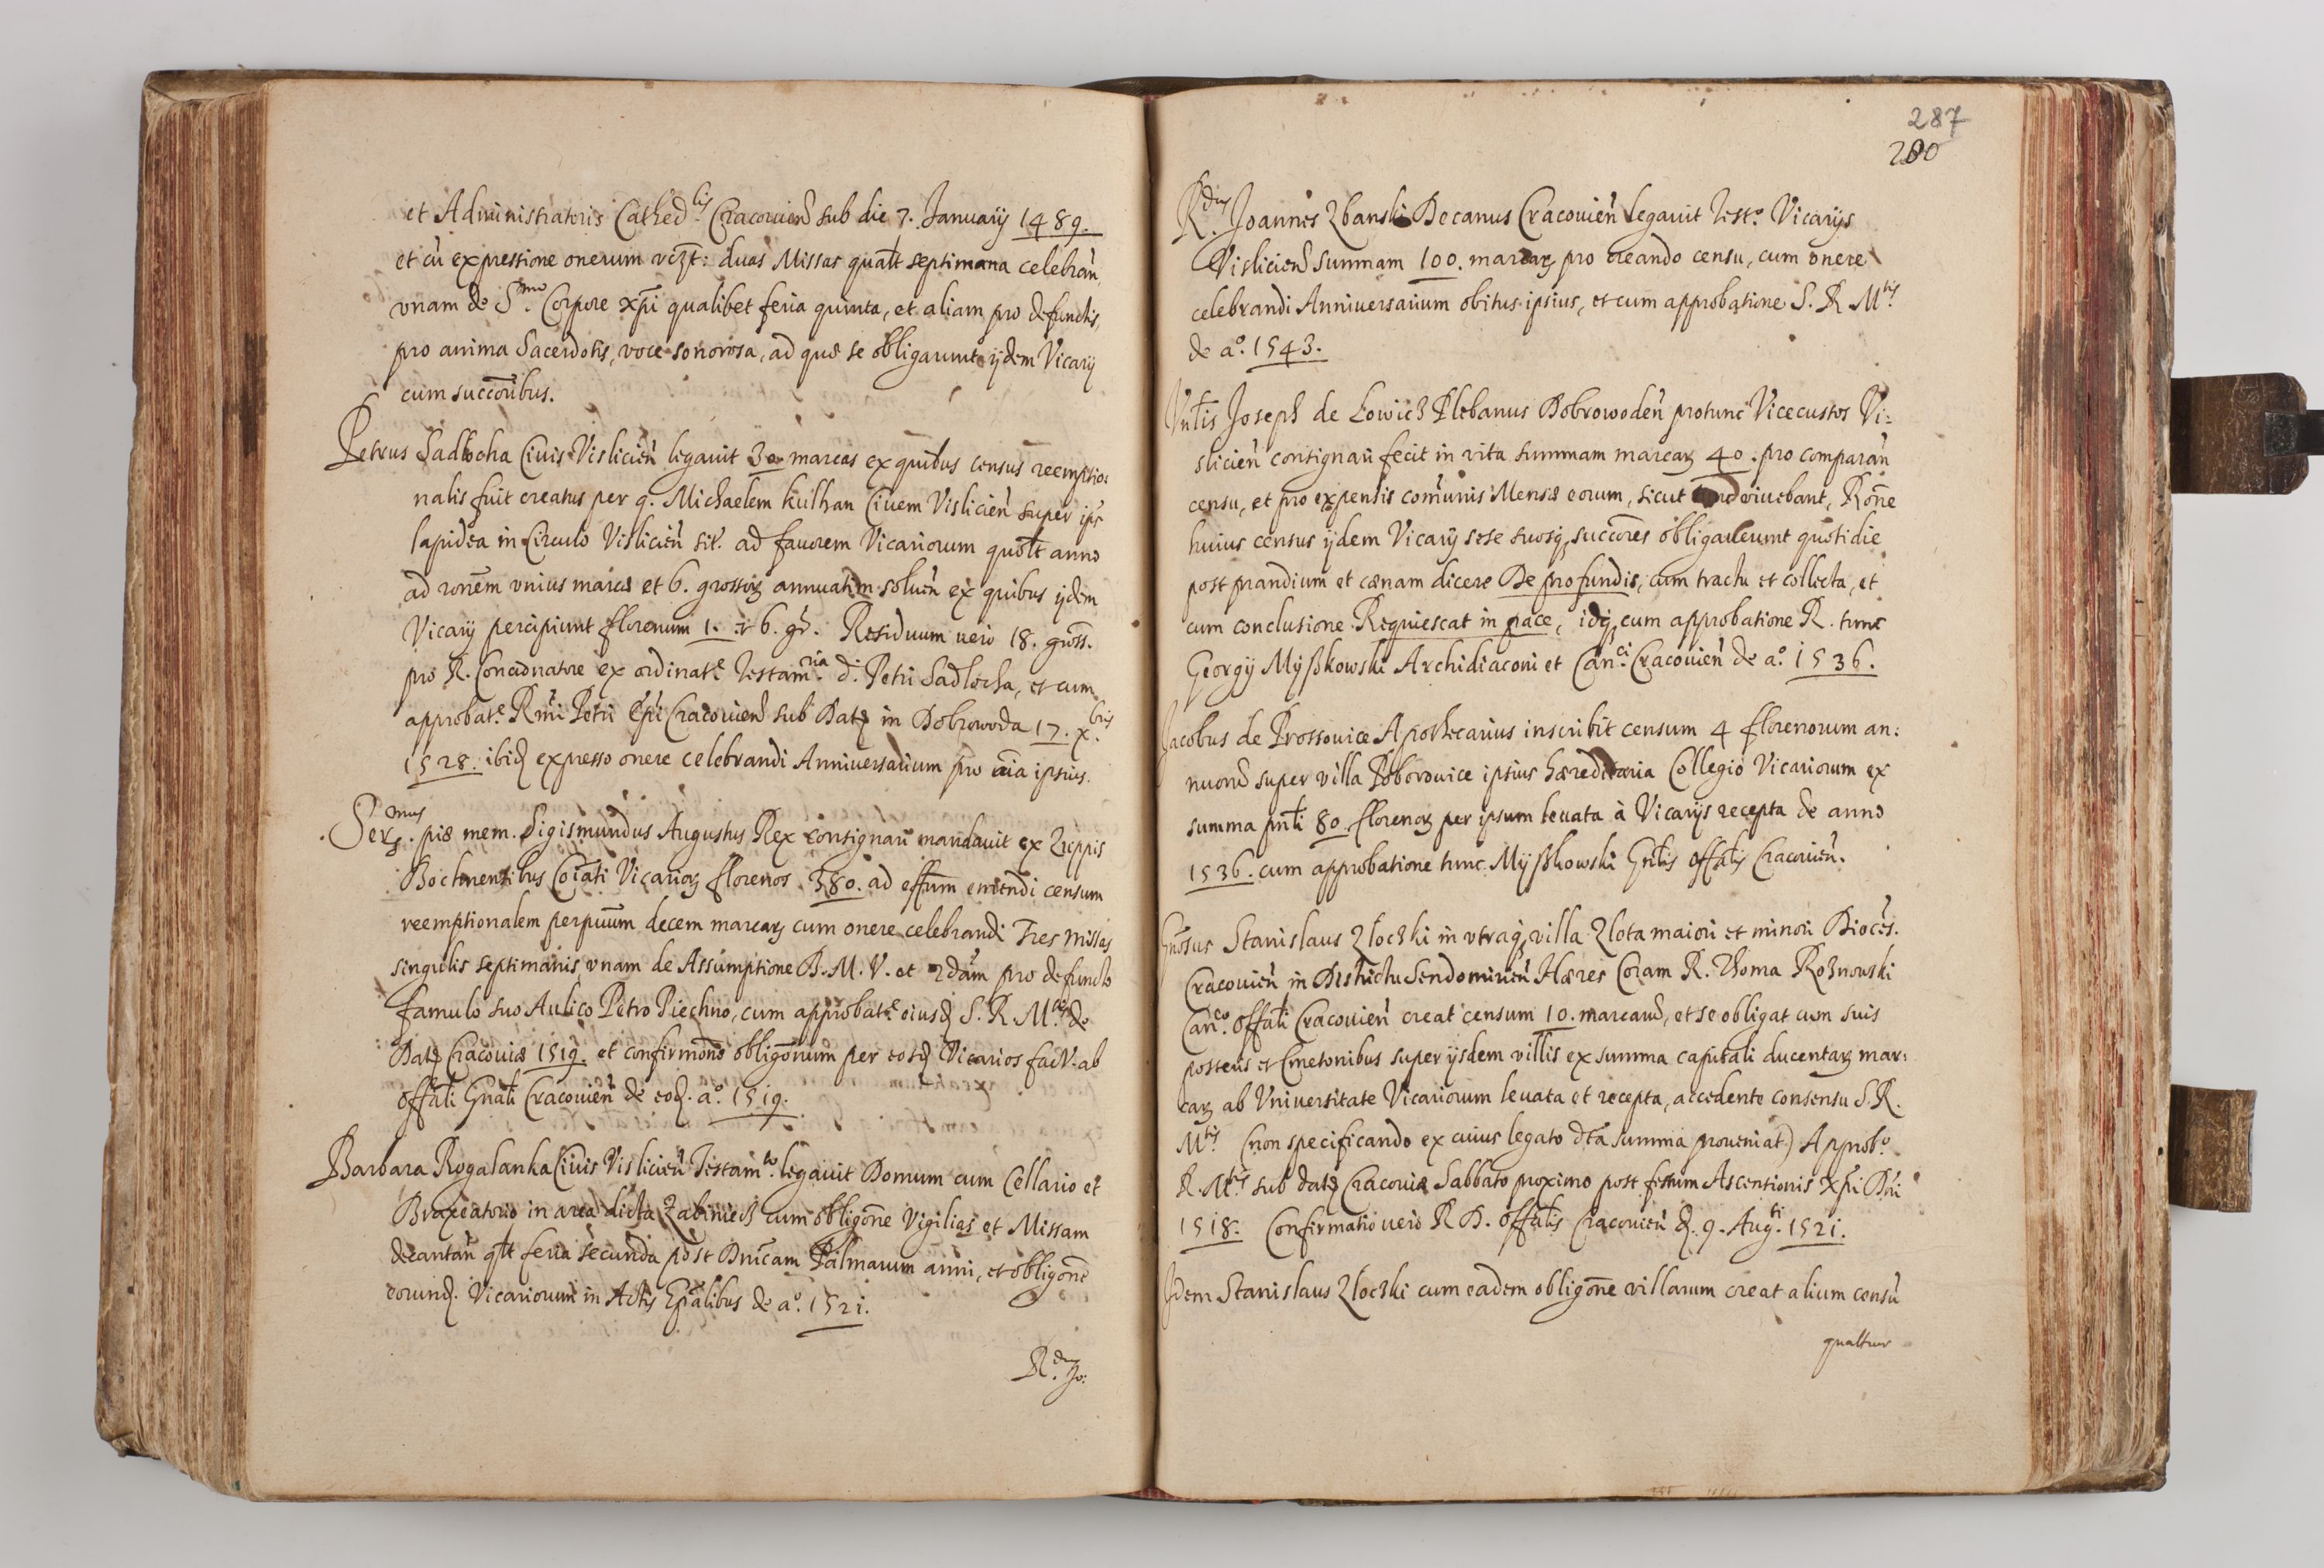 et Administratoris Cathed.lis Cracouien sub die 7. Januarij 1489.
et cũ expressione onerum vczt: duas Missas qualt septimana celebrañ,
vnam de S.mo Corpore xp̃i qualibet feria quinta, et aliam pro defunctis,
pro anima Sacerdotis, voce sonorosa, ad quæ se obligarunt ijdem Vicarij
cum succõribus.
Petrus Sadłocha Ciuis Visliciẽn legauit 30 marcas ex quibus census reemptio:
nalis fuit creatus per q. Michaelem kulhan Ciuem Visliciẽn super
lapidea in Circulo Visliciẽn sit. ad fauorem Vicariorum quolt anno
ad ronẽm vnius marcæ et 6. grossor annuatim soluẽn ex quibus ijdem
Vicarij percipiunt florenum 1. et 6. gr. Residuum uero 18. gross.
pro R. Concionatore ex ordinat.e Testam.ria d. Petri Sadlocha, et cum
approbat.e Rmi Petri Ep̃i Cracouien sub Dat in Dobrowoda 17. x.bris
1528. ibid expresso onere celebrandi Anniuersarium pro aĩa ipsius.
Ser.mus piæ mem. Sigismundus Augustus Rex consignari mandauit ex Zuppis
Bochnensibus Coĩati Vicarior florenos 380. ad effũm emendi censum
reemptionalem perpuũm decem marcar cum onere celebrandi Tres Missas
singulis septimanis, vnam de Assumptione B. M. V. et 2dam pro defuncto
famulo suo Aulico Petro Piechno, cum approbat.e eiusd S. R. M.tis de
Dat Cracouiæ 1519. et confirmõne obligõnum per eosd Vicarios fact. ab
offãli Gnãli Cracouiẽn de eod. a.o 1519.
Barbara Rogalanka Ciuis Visliciẽn Testam.to legauit Domum cum Cellario et
Braxeatorio in area dicta Zabiniecz cum obligõne Vigilias et Missam
decantañ qlt feria secunda post Dnĩcam Palmarum anni, et obligõne
eorund. Vicariorum in Actis Ep̃alibus de a.o 1521.
R.dus Jo:
287
200
R.dus Joannes Zbanski Decanus Cracouiẽn legauit Test.o Vicarijs
Vislicien summam 100. marcar pro creando censu, cum onere
celebrandi Anniuersarium obitus ipsius, et cum approbatione S. R. M.tis
de a.o 1543.
Vnlis Joseph de Lowicz Plebanus Dobrowodẽn protunc Vicecustos Vi:
sliciẽn consignari fecit in vita summam marcar 40. pro comparañ
censu, et pro expensis com̃unis Mensæ eorum, sicut viuebant, Rõne
huius census ijdem Vicarij sese suosq succõres obligauerunt quotidie
post prandium et cænam dicere De profundis, cum tractu et collecta, et
cum conclusione Requiescat in pace, idq cum approbatione R. tunc
Georgij Myszkowski Archidiaconi et Can.ci Cracouiẽn de a.o 1536.
Jacobus de Prossouice Apothecarius inscribit censum 4 florenorum an:
nuorũ super villa Boborowice ipsius hæreditaria Collegio Vicariorum ex
summa pñti 80. florenor per ipsum leuata à Vicarijs recepta de anno
1536. cum approbatione tunc Myszkowski Gñlis offãlis Cracouiẽn.
Gñosus Stanislaus Zloczki in vtraq villa Zlota maiori et minori Dioces.
Cracouiẽn in Districtu Sendomiriẽn Hæres Coram R. Thoma Roznowski
Can.co offãli Cracouiẽn creat censum 10. marcarũ, et se obligat cum suis
posteris et Cmetonibus super ijsdem villis ex summa capitali ducentar mar:
car ab Vniuersitate Vicariorum leuata et recepta, accedente consensu S. R.
M.tis (non specificando ex cuius legato dcta summa proueniat) Approb.o
R. M.tis sub dat Cracouiæ Sabbato proximo post festum Ascensionis Xp̃i Dñi
1518. Confirmatio uero R. D. offãlis Cracouiẽn d. 9. Aug.ti 1521.
Idem Stanislaus Zloczki cum eadem obligõne villarum creat alium censũ
quattuor